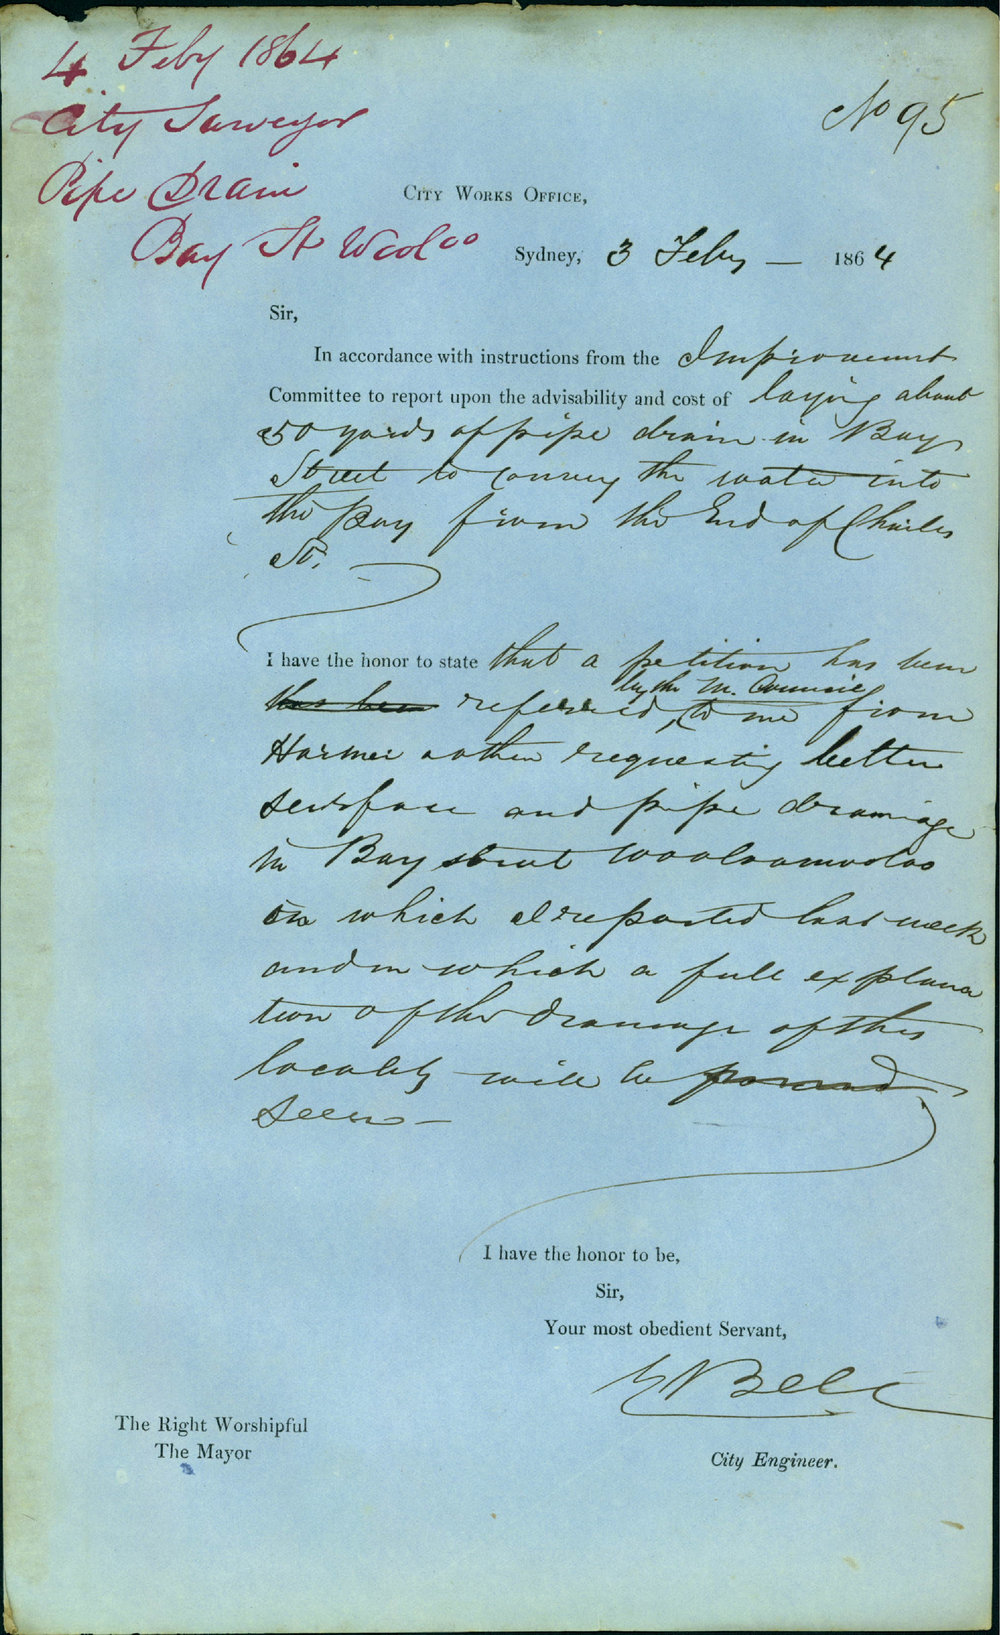 4 Feby 1864
City Surveyor
Pipe Drain
Bay St Wooloo
No 95
City Works Office,
Sydney, 3 Feby — 1864
Sir,
In accordance with instructions from the Improvement
Committee to report upon the advisability and cost of laying about
50 yards of pipe drain in Bay
Street to convey the water into
the Bay from the End of Charles
St.
I have the honor to state that a petition has been
by the M. Council
has been referred, to me from
Harmer & others requesting better
surface and pipe drainage
in Bay street Wooloomooloo
on which I reported last week
and in which a full explana
tion of the drainage of this
locality will be found
seen —
I have the honor to be,
Sir,
Your most obedient Servant,
Bell
The Right Worshipful
The Mayor
City Engineer.